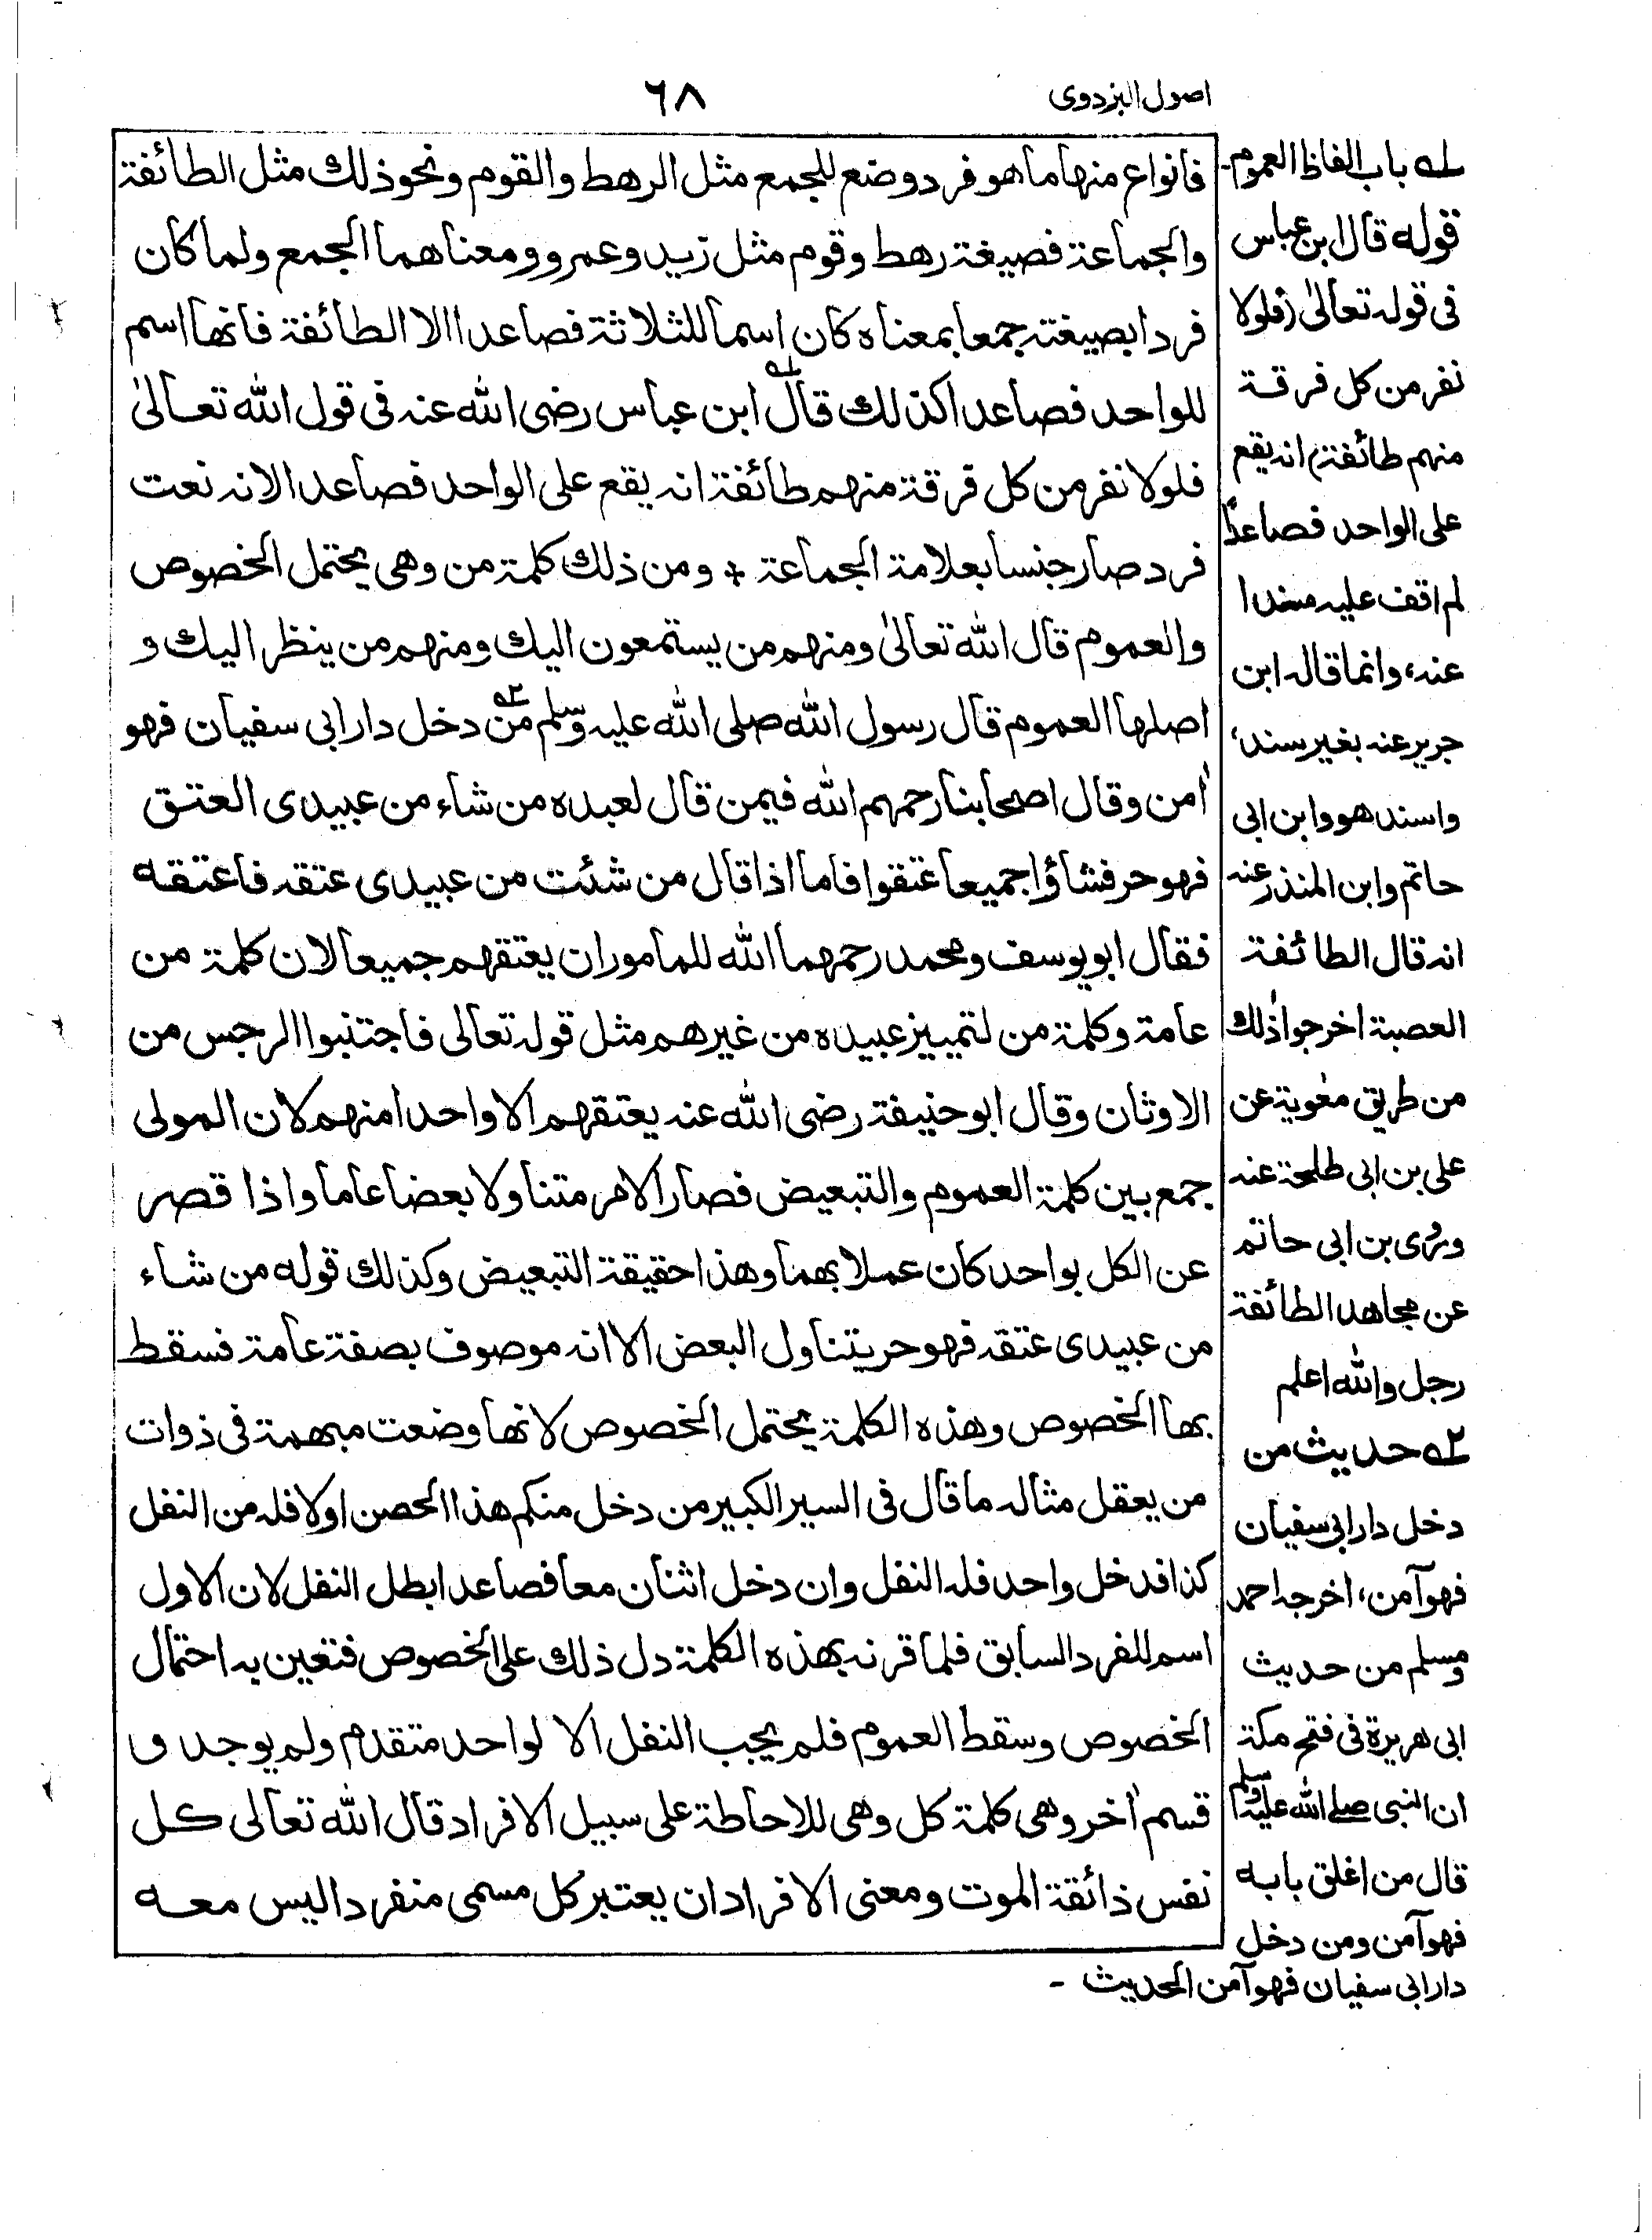 اصول البزدوى
٦٨
فانواع منها ما هو فرد وضع للجمع مثل الرهط والقوم ونحو ذلك مثل الطائفة
والجماعة فصيغة رهط وقوم مثل زيد وعمرو ومعناهما الجمع ولما كان
فردا بصيغته جمعا بمعناه كان اسما للثلاثة فصاعدا الا الطائفة فانها اسم
للواحد فصاعدا كذلك قال ابن عباس رضى الله عنه فى قول الله تعالىٰ
فلولا نفر من كل فرقة منهم طائفة انه يقع على الواحد فصاعدا لانه نعت
فرد صار جنسا بعلامة الجماعة + ومن ذلك كلمة من وهى يحتمل الخصوص
والعموم قال الله تعالىٰ ومنهم من يستمعون اليك ومنهم من ينظر اليك و
اصلها العموم قال رسول الله صلى الله عليه وسلم من دخل دار ابى سفيان فهو
اٰمن وقال اصحابنا رحمهم الله فيمن قال لعبده من شاء من عبيدى العتق
فهو حر فشاؤا جميعا عتقوا فاما اذا قال من شئت من عبيدى عتقه فاعتقه
فقال ابو يوسف ومحمد رحمهما الله للمامور ان يعتقهم جميعا لان كلمة من
عامة وكلمة من لتمييز عبيده من غيرهم مثل قوله تعالى فاجتنبوا الرجس من
الاوثان وقال ابو حنيفة رضى الله عنه يعتقهم الا واحدا منهم لان المولى
جمع بين كلمة العموم والتبعيض فصار الامر متناولا بعضا عاما واذا قصر
عن الكل بواحد كان عملا بهما وهذا حقيقة التبعيض وكذلك قوله من شاء
من عبيدى عتقه فهو حر يتناول البعض الا انه موصوف بصفة عامة فسقط
بها الخصوص وهذه الكلمة يحتمل الخصوص لانها وضعت مبهمة فى ذوات
من يعقل مثاله ما قال فى السير الكبير من دخل منكم هذا الحصن اولا فله من النفل
كذا فدخل واحد فله النفل وان دخل اثنان معا فصاعدا بطل النفل لان الاول
اسم للفرد السابق فلما قرنه بهذه الكلمة دل ذلك على الخصوص فتعين به احتمال
الخصوص وسقط العموم فلم يجب النفل الا لواحد متقدم ولم يوجد و
قسم اٰخر وهى كلمة كل وهى للاحاطة على سبيل الافراد قال الله تعالى كل
نفس ذائقة الموت ومعنى الافراد ان يعتبر كل مسمى منفردا ليس معه
له باب الفاظ العموم-
قوله قال ابن عباس
فى قوله تعالىٰ (فلولا
نفر من كل فرقة
منهم طائفة) انه يقع
على الواحد فصاعدًا
لم اقف عليه مسندا
عنه، وانما قاله ابن
جرير عنه بغير سند،
واسند هو وابن ابى
حاتم وابن المنذر عنه
انه قال الطائفة
العصبة اخرجوا ذٰلك
من طريق معٰوية عن
على بن ابى طلحة عنه
وروى بن ابى حاتم
عن مجاهد الطائفة
رجل والله اعلم
٢ه حديث من
دخل دار ابى سفيان
فهو آمن، اخرجه احمد
ومسلم من حديث
ابى هريرة فى فتح مكة
ان النبى صلے الله عليه وسلم
قال من اغلق بابه
فهو آمن ومن دخل
دار ابى سفيان فهو آمن الحديث -